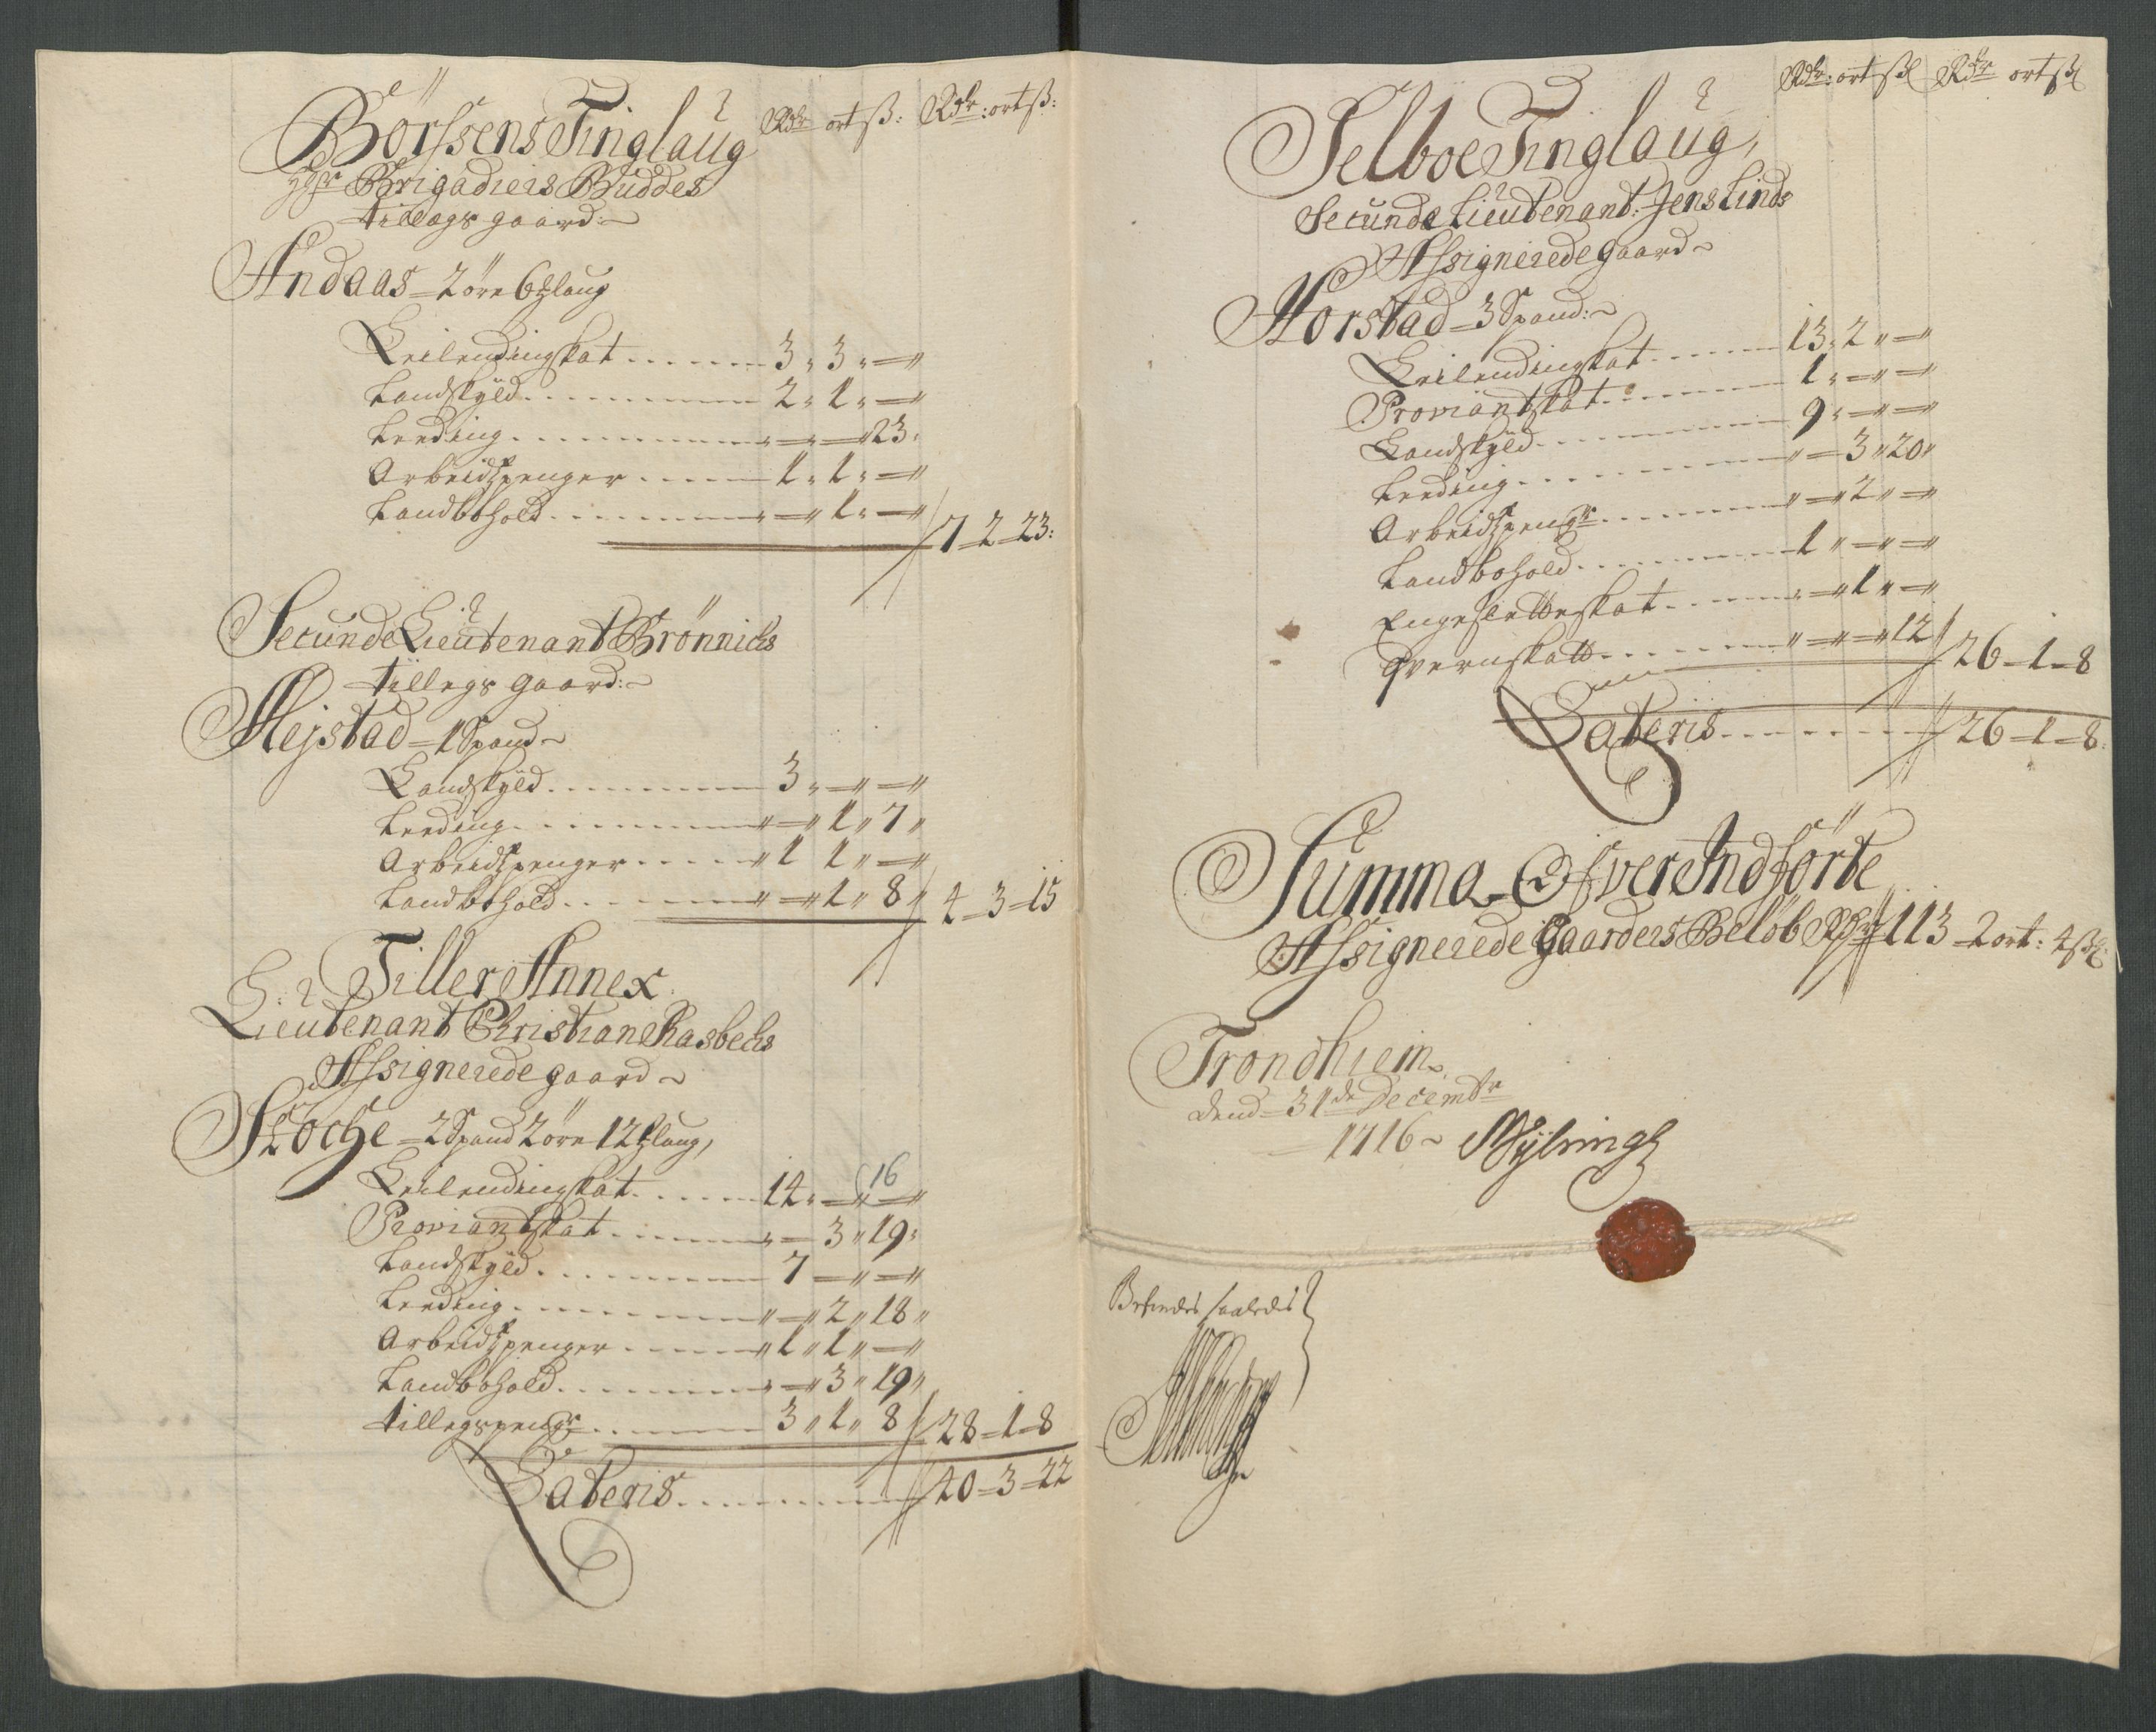 Rdr ort ß: Rdr: ort ß:
Börssens Tinglaug
Hr Brigadiers Buddes
tillegs gaard:
Andaas = 2 öre 6 Mklaug
Leilendingskat ...... 3 " 3 " =
Landskyld ...... 2 " 1 " =
Leeding ...... " = " = " 23 "
Arbeidspenger ...... 1 " 1 " =
Landbohold ...... " = " 1 " = 7 = 2 = 23:
Secunde Lieutenant Brönnichs
tillegs gaard:
Mejstad = 1 Spand
Landskyld ...... 3 " = " =
Leeding ...... " = " 1 " 7 "
Arbeidspenger ...... " 1 1 " =
Landbohold ...... " = " 1 " 8 " 4 = 3 = 15
Tiller Annex
Lieutenant Christian Rasbechs
Assignerede gaard
Stoche = 2 Spand 2 öre 12 Mklaug,
Leilendingskat ...... 14 " = " 16
Proviantskat ...... " = 3 " 19 "
Landskyld ...... 7 = " =
Leeding ...... " = " 2 " 18 "
Arbeidspenger ...... " 1 " 1 " =
Landbohold ...... " = 3 " 19 "
tillegspengr ...... 3 " 1 " 8 28 = 1 = 8
Lateris ...... 40 = 3 = 22
Rdr: ort ßl Rdr ort ßl
Selboe Tinglaug,
Secunde Lieutenant: Jens Linds
Assignerede gaard
Morstad = 3 Spand:
Leilendingskat ...... 13 " 2 " =
Proviantskat ...... 1 " = " =
Landskyld ...... 9 " = " =
Leeding ...... " = 3 " 20 "
Arbeidspengr ...... " = " 2 " =
Landbohold ...... 1 " = " =
Engesletteskat ...... " = " 1 " =
Qvernskatt ...... " = " = " 12 26 = 1 = 8
Lateris ...... 26 = 1 = 8:
Summa Ofver Indförte
Assignerede Gaarders Belöb Rdr 113 = 2 ort: 4 ßl:
Trondhiem
dend = 31de Decembr
1716
Befindes saaledes